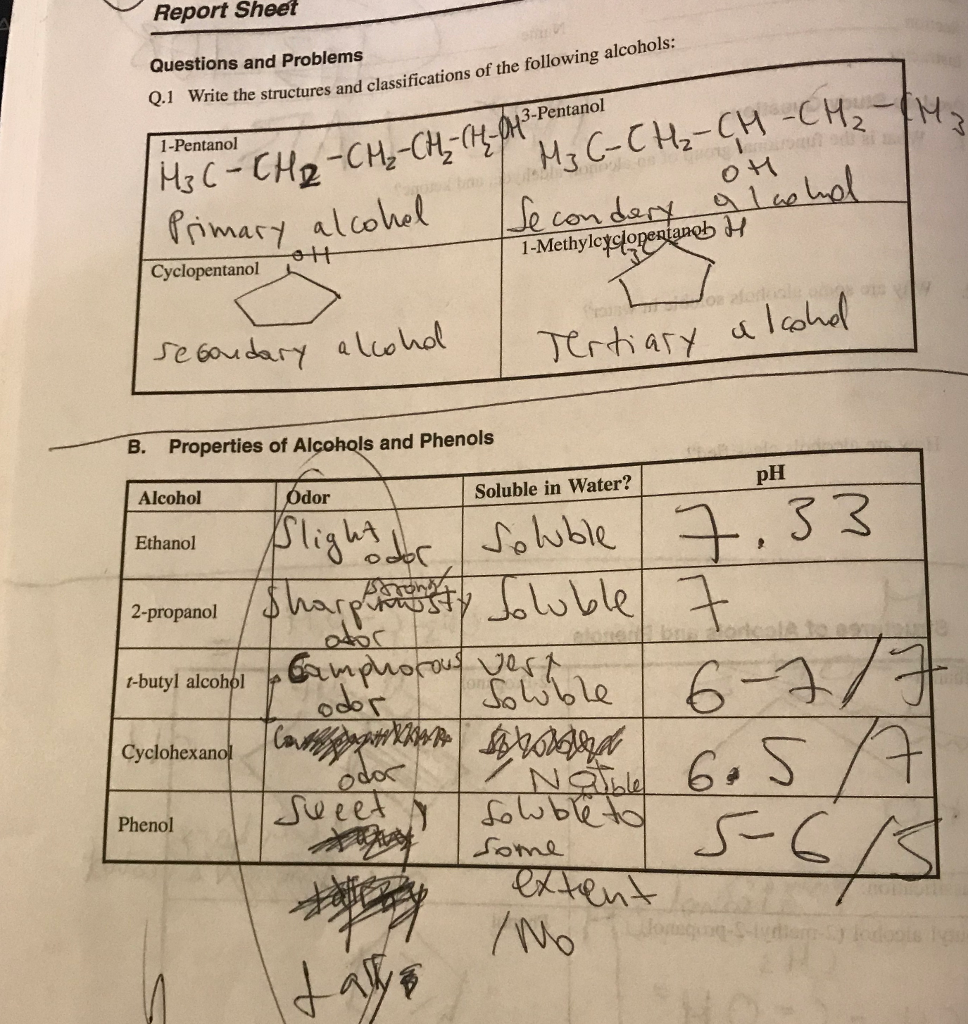 Report Sheet
Questions and Problems
Q.1 Write the structures and classifications of the following alcohols:
1-Pentanol
H3C-CH2-CH2-CH2-CH2-OH
Primary alcohol
3-Pentanol
H3C-CH2-CH-CH2-CH3
OH
Secondery alcohol
Cyclopentanol
OH
secondary alcohol
1-Methylcyclopentanol
H3C OH
Tertiary alcohol
B. Properties of Alcohols and Phenols
Alcohol Odor Soluble in Water? pH
Ethanol Slight odor Soluble 7.33
2-propanol Sharp strong musty odor Soluble 7
t-butyl alcohol Camphorous odor very Soluble 6-7/7
Cyclohexanol odor 6.5/7
Phenol Sweet Soluble to some extent / No 5-6/5